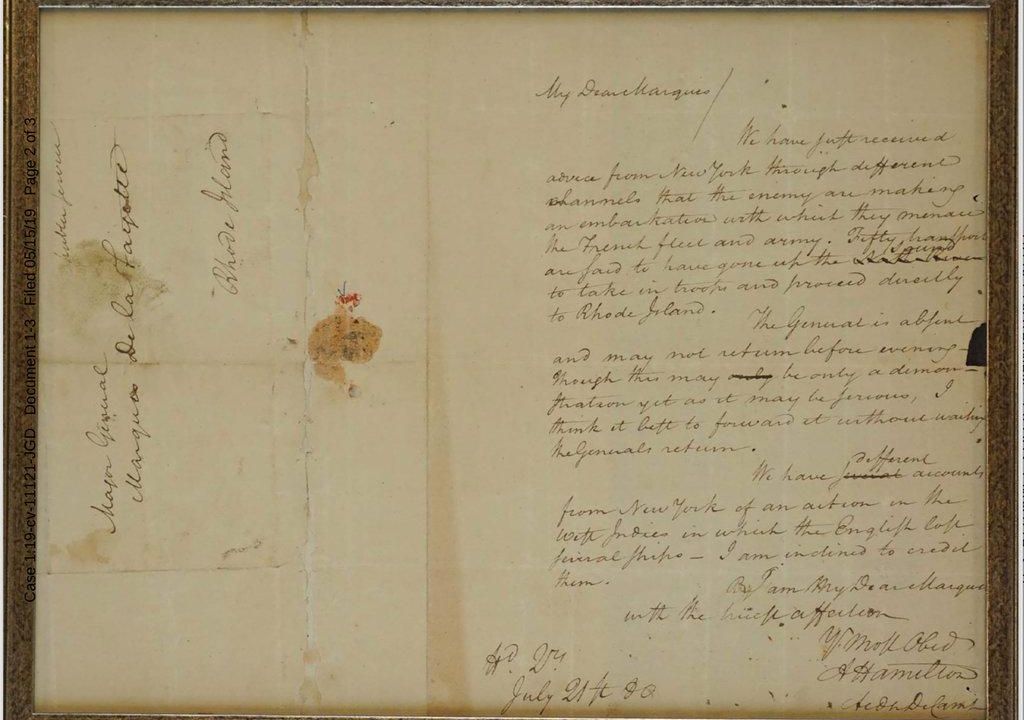 Case 1:19-cv-11121-JGD Document 1-3 Filed 05/15/19 Page 2 of 3
Major General
Marquis De la Fayette
Rhode Island
My Dear Marquis /
We have just received
advice from New York through different
channels that the enemy are making
an embarkation with which they menace
the French fleet and army. Fifty transports
are said to have gone up the Sound
to take in troops and proceed directly
to Rhode Island.
The General is absent
and may not return before evening
though this may only be only a demon-
stration yet as it may be serious, I
think it best to forward it without waiting
the Generals return.
We have several different accounts
from New York of an action in the
West Indies in which the English lost
several ships – I am inclined to credit
them.
I am My Dear Marquis
with the truest affection
Yr Most Obed
AHamilton
Aide De Camp
Hd Qrs
July 21st 80